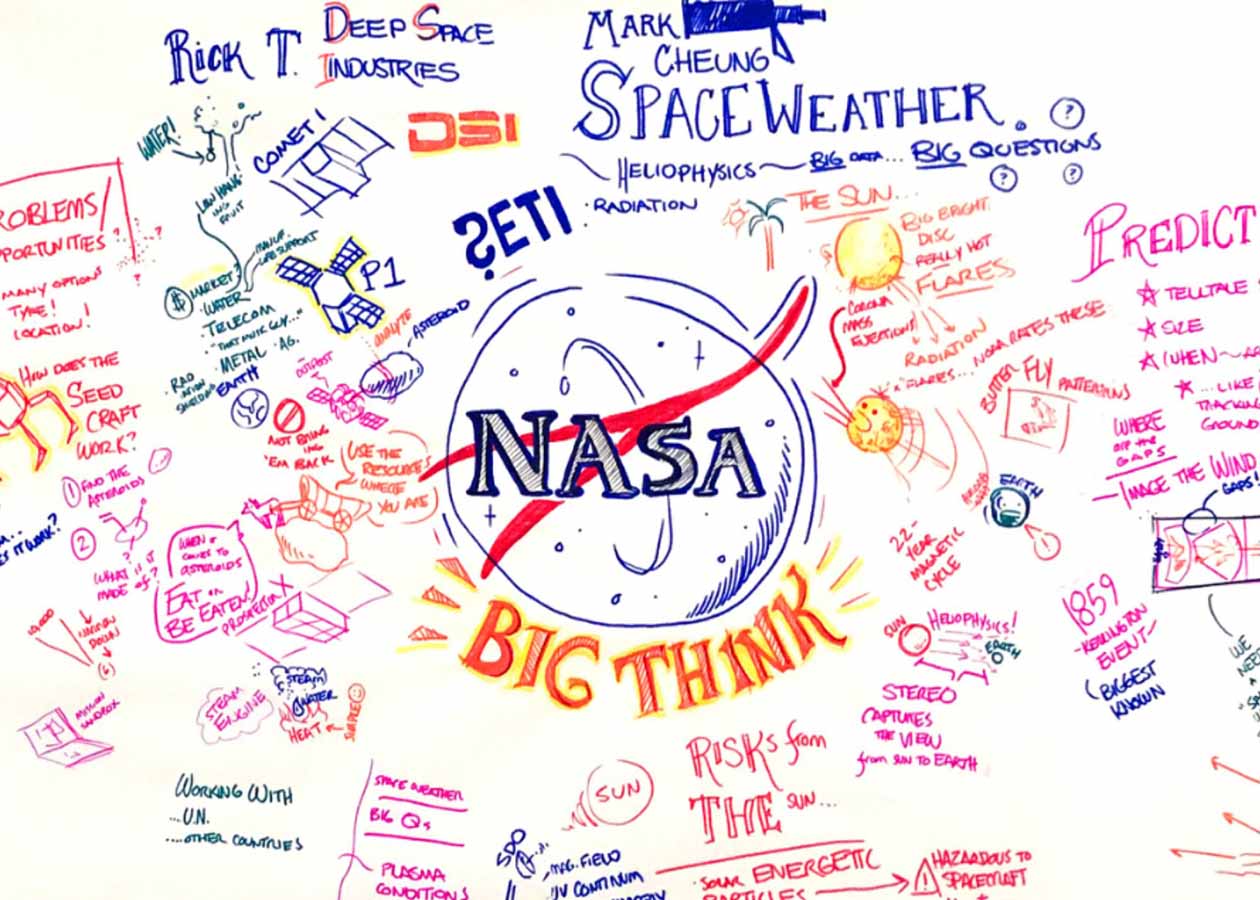 RICK T.
DEEP SPACE
INDUSTRIES
MARK
CHEUNG
SPACE WEATHER.
?
HELIOPHYSICS
BIG DATA... BIG QUESTIONS
?
?
· RADIATION
WATER!
COMET!
DSI
LOW HANG
ING
FRUIT
SETI
ROBLEMS/
PPORTUNITIES?
MANY OPTIONS
TYPE!
LOCATION!
$
MARKET?
WATER
TELECOM
METAL
P1
ASTEROID
OUTPOST
RAD
IATION
SHIELDING
EARTH
NOT BRING
ING
'EM BACK
USE THE
RESOURCES
WHERE
YOU ARE
HOW DOES THE
SEED
CRAFT
WORK?
1 FIND THE
ASTEROIDS
2
WHAT IS IT
MADE OF?
WHEN IT
COMES TO
ASTEROIDS
EAT OR
BE EATEN!
PROSPECTOR X
WORK?
DOWN
(6)
MISSION
SANDBOX
STEAM
ENGINE
(STEAM)
WATER
HEAT
SIMPLE
NASA
BIG THINK
THE SUN...
BIG BRIGHT
DISC
REALLY HOT
FLARES
CORONA
MASS
EJECTIONS!
RADIATION
"FLARES"... NOAA RATES THESE
BUTTERFLY PATTERNS
EARTH
22-
YEAR
MAGNETIC
CYCLE
PREDICT
TELLTALE
SIZE
WHEN
...LIKE
TRACKING
GROUND
WHERE
are the
GAPS
IMAGE THE WIND
GAPS!
1859
EVENT
BIGGEST
KNOWN
SUN
HELIOPHYSICS!
EARTH
STEREO
CAPTURES
THE VIEW
from SUN TO EARTH
WORKING WITH
...U.N.
....OTHER COUNTRIES
SPACE WEATHER
BIG Qs
PLASMA
CONDITIONS
SUN
SDO
MAG. FIELD
UV CONTINUM
RISKS from
THE SUN...
· SOLAR ENERGETIC
PARTICLES
HAZARDOUS TO
SPACECRAFT
WE
NEED